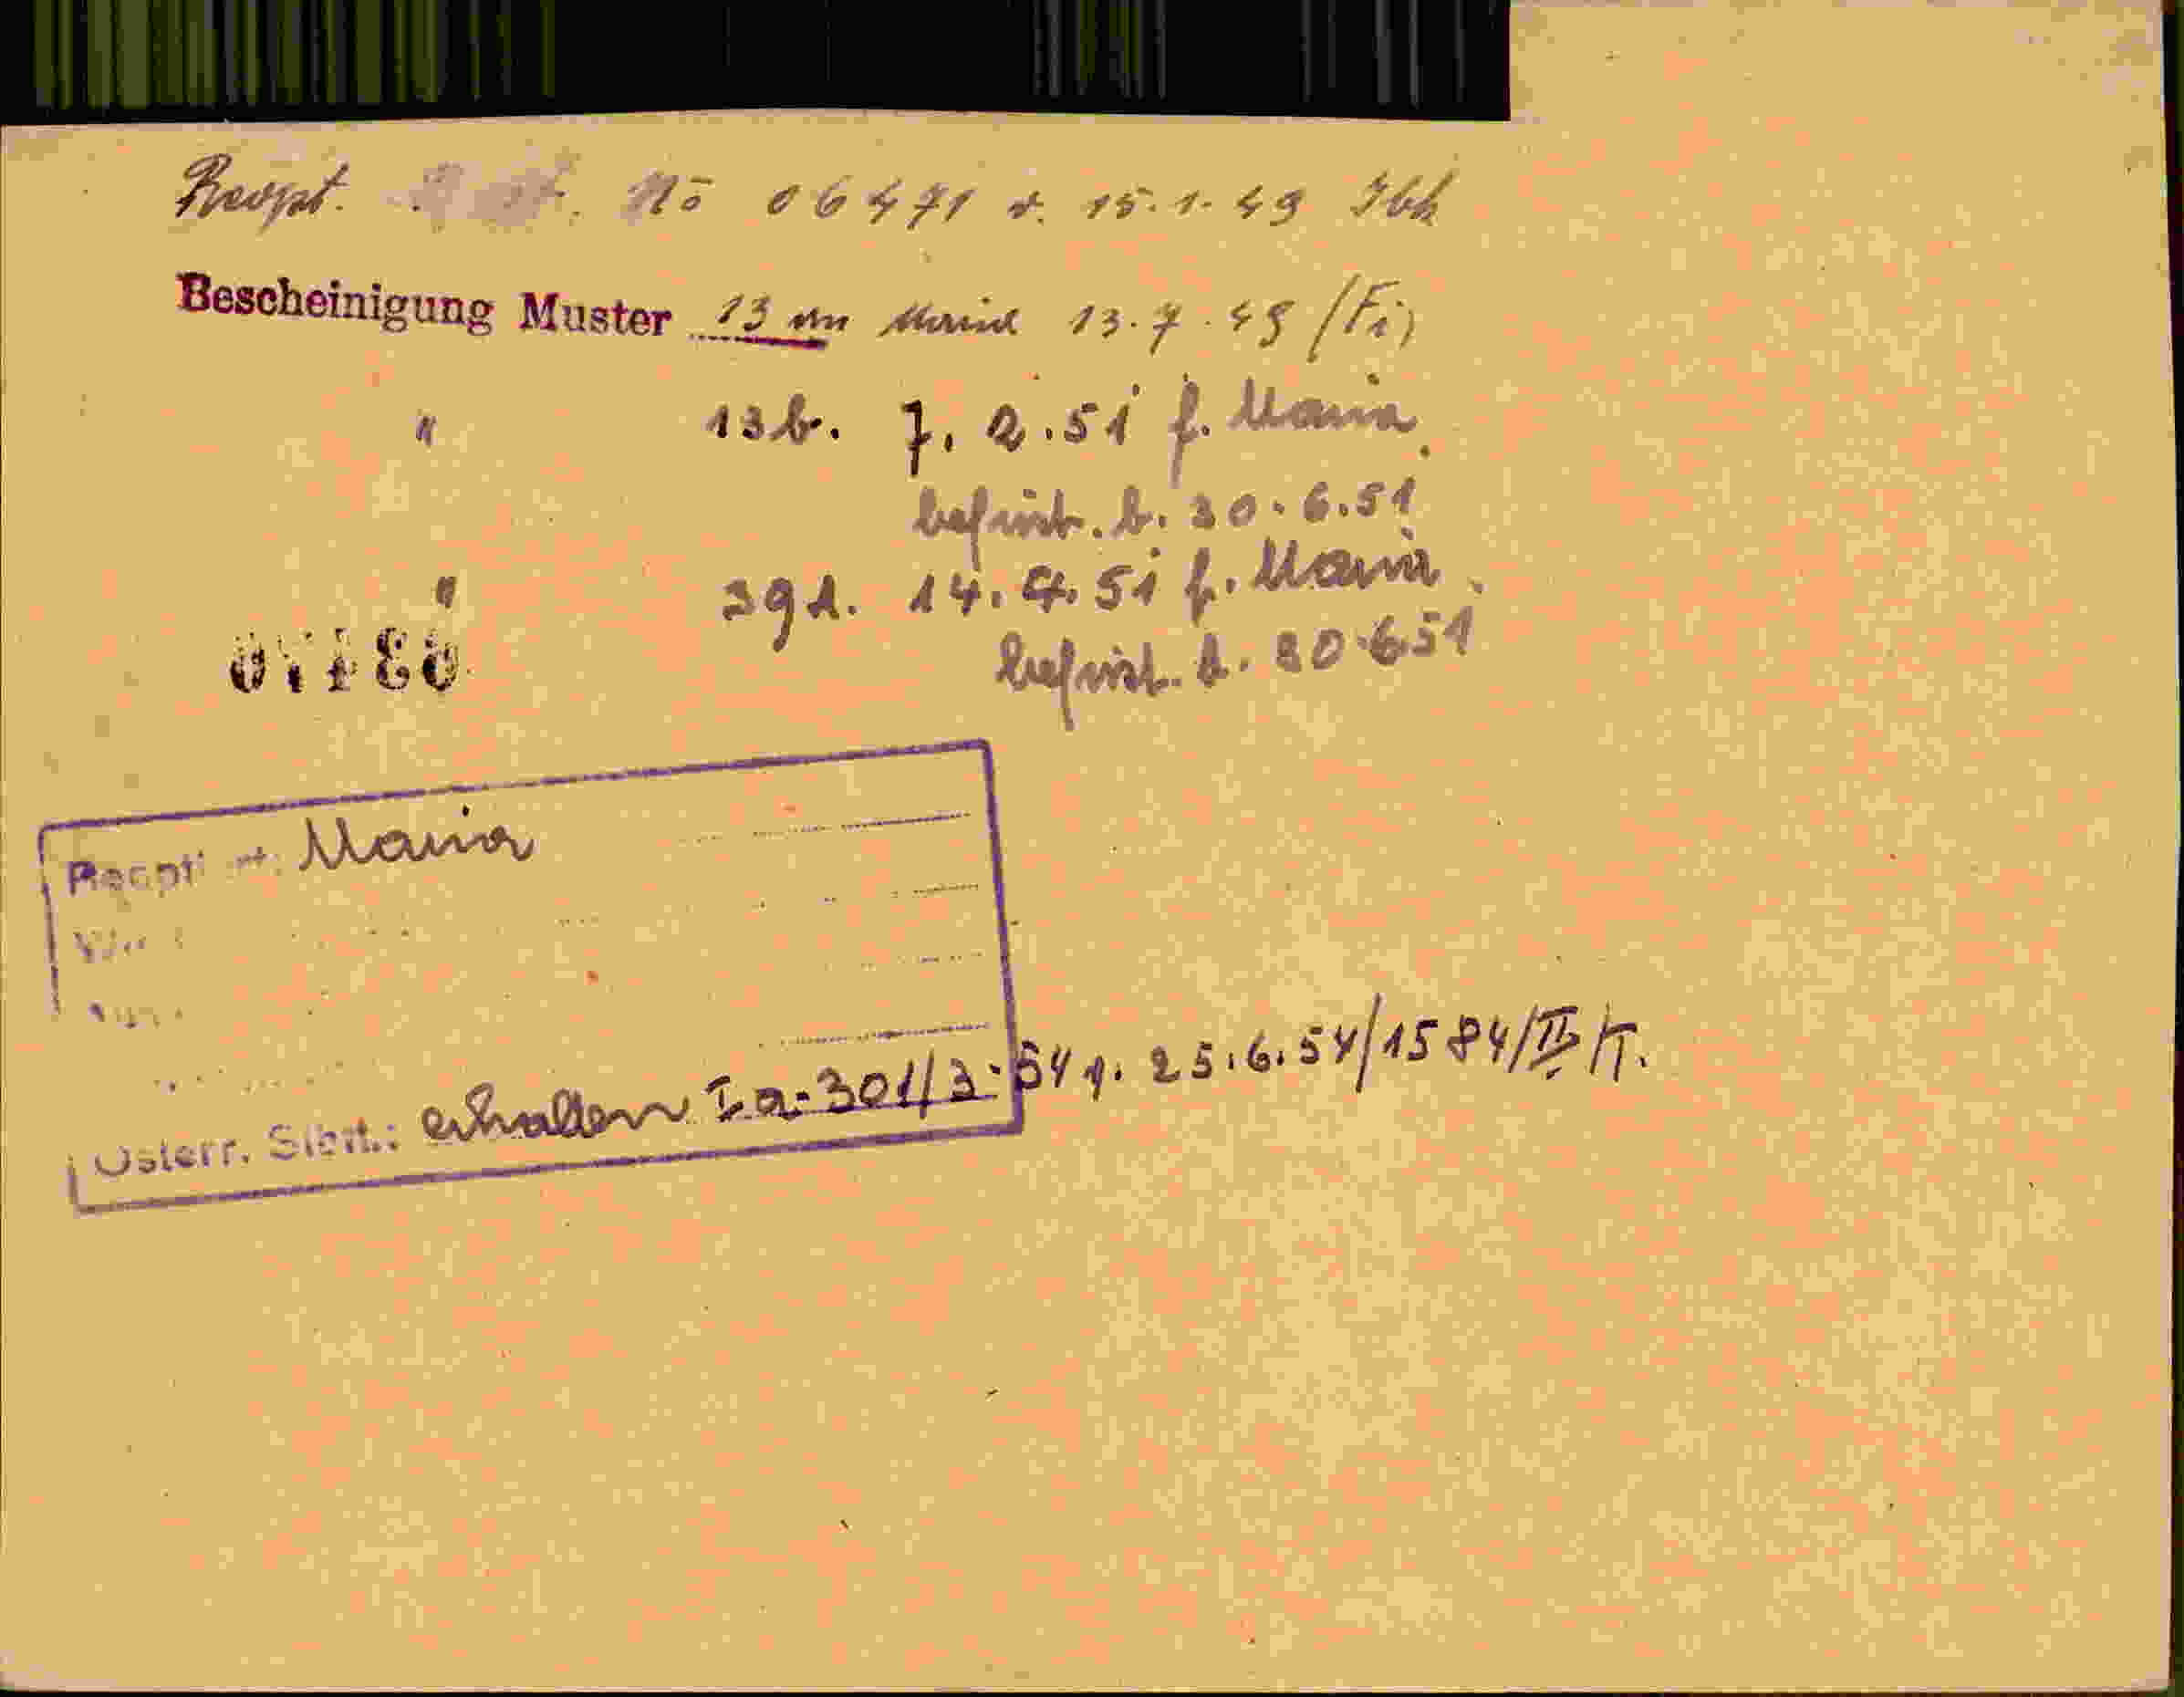 Reopt. No 06471 v. 15.1.49 Ibk
Bescheinigung Muster 13 an Maria 13.7.49 (Fi)
" 13b. 7.2.51 f. Maria
befrist. b. 30.6.51
" 39d. 14.4.51 f. Maria
befrist. b. 30.6.51
Maria
Österr. Stbft.: erhalten Ia-301/3-54 v. 25.6.54/1584/II/T.